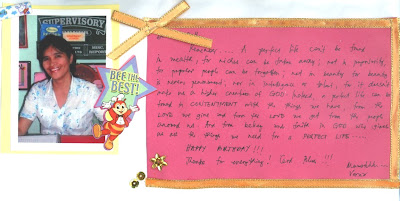 SUPERVISORY
BEE THE
BEST!
A perfect life can't be found
in wealth, for riches can be taken away; not in popularity,
for popular people can be forgotten; not in beauty for beauty
is never permanent; nor in intelligence or
a perfect life can be
found in CONTENTMENT with the things we have, from the
LOVE we give and from the LOVE we get from the people
around us and from having our faith in GOD who gives
us all the things we need for a PERFECT LIFE....
HAPPY BIRTHDAY!!!
Thanks for everything! God Bless!!!